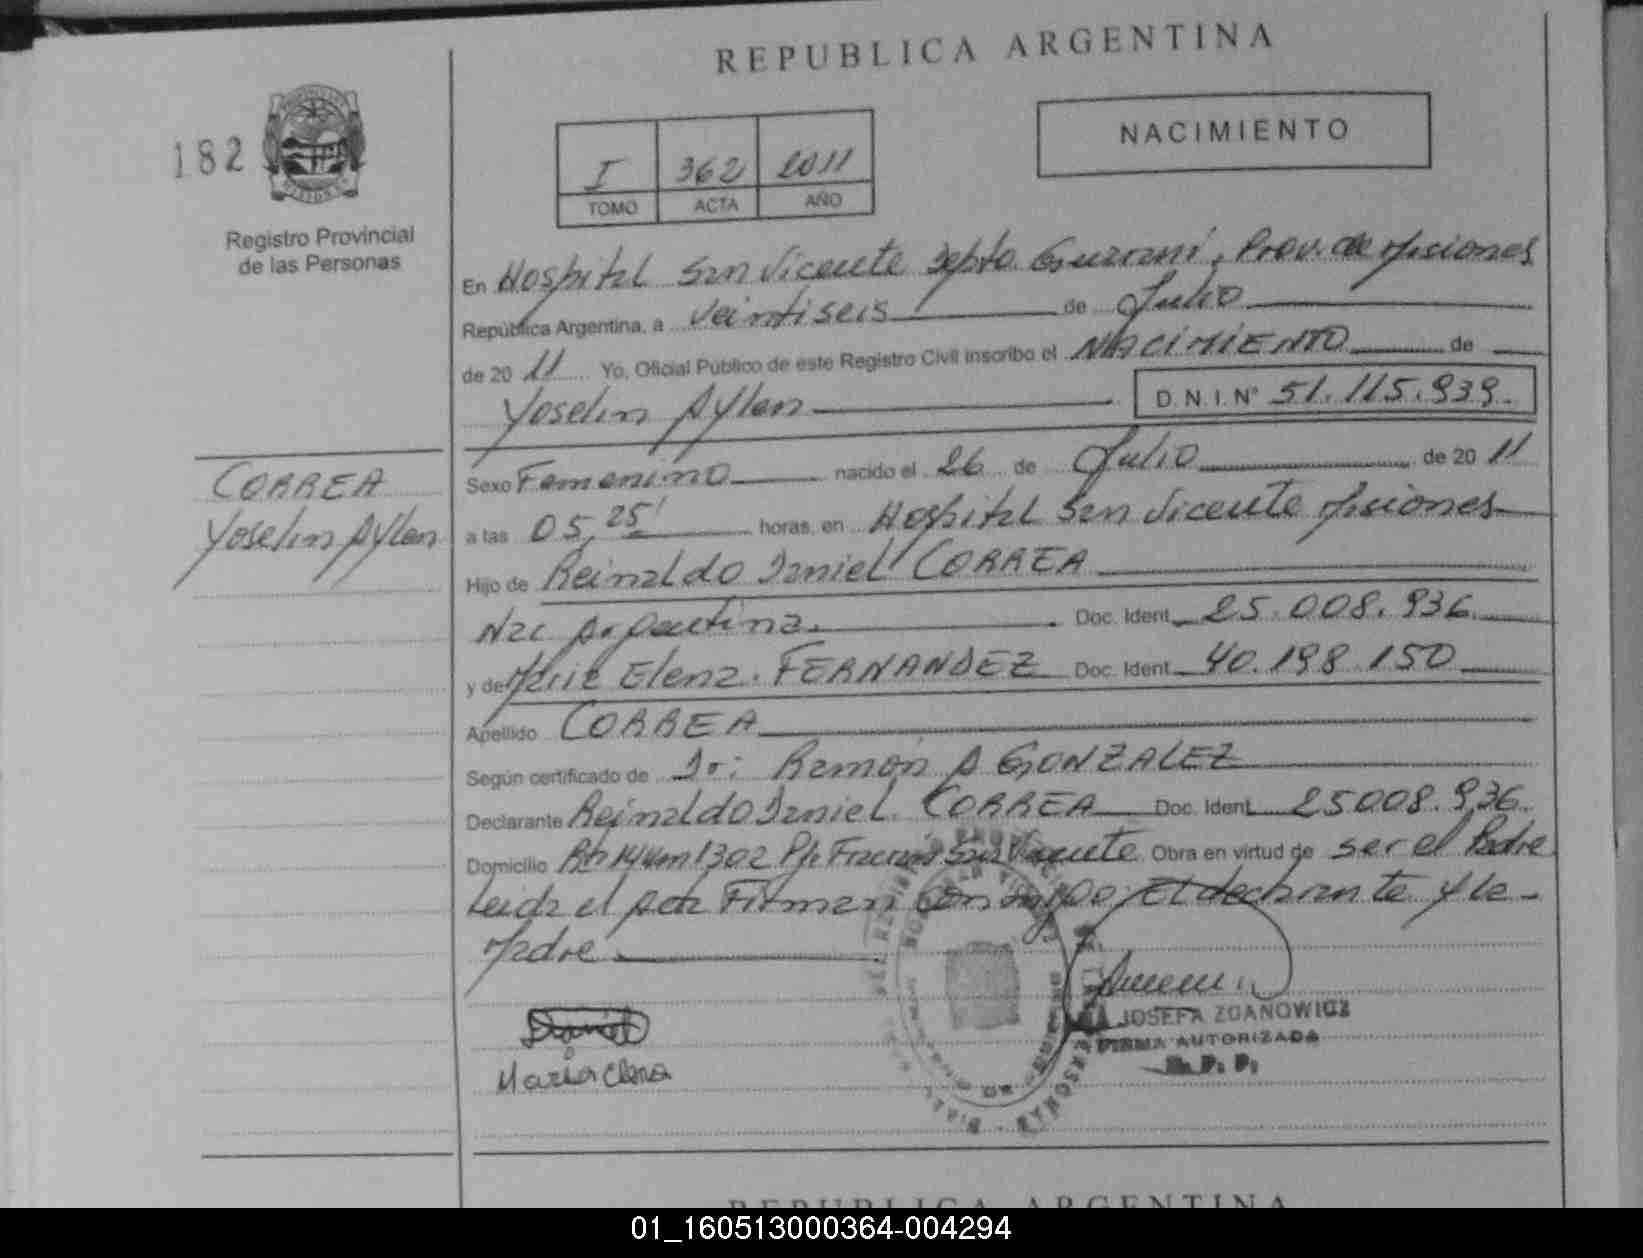 REPUBLICA ARGENTINA
182
NACIMIENTO
I 362 2011
TOMO ACTA AÑO
Registro Provincial
de las Personas
En Hospital San Vicente Depto. Guaraní, Prov. de Misiones
República Argentina, a Veintiseis de Julio
de 2011 Yo, Oficial Público de este Registro Civil inscribo el NACIMIENTO de
Yoselin Aylen D.N.I. Nº 51.115.939.
CORREA
Yoselin Aylen
Sexo Femenino nacido el 26 de Julio de 2011
a las 05,25' horas, en Hospital San Vicente Misiones
Hijo de Reinaldo Daniel CORREA
Nac Argentina. Doc. Ident. 25.008.936
y de Maria Elena. FERNANDEZ Doc. Ident. 40.198.150
Apellido CORREA
Según certificado de Dr: Ramón A GONZALEZ
Declarante Reinaldo Daniel CORREA Doc. Ident. 25008.936
Domicilio San Vicente Obra en virtud de ser el Padre
Leida el Acta Firman Conmigo: El declarante y la
Madre
Daniel
Maria Elena
JOSEFA ZDANOWICZ
FIRMA AUTORIZADA
R. P. P.
REPUBLICA ARGENTINA
01_160513000364-004294